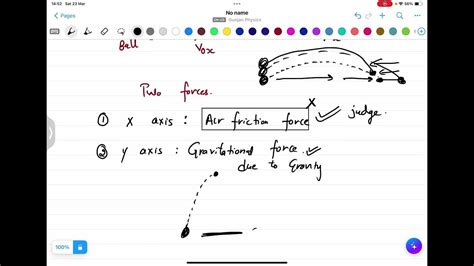 14:52 Sat 23 Mar
66%
Pages
No name
Gunjan Physics
Ball
Vox
Two forces.
① x axis : Air friction force x judge.
② y axis : Gravitational force
due to Gravity
100%